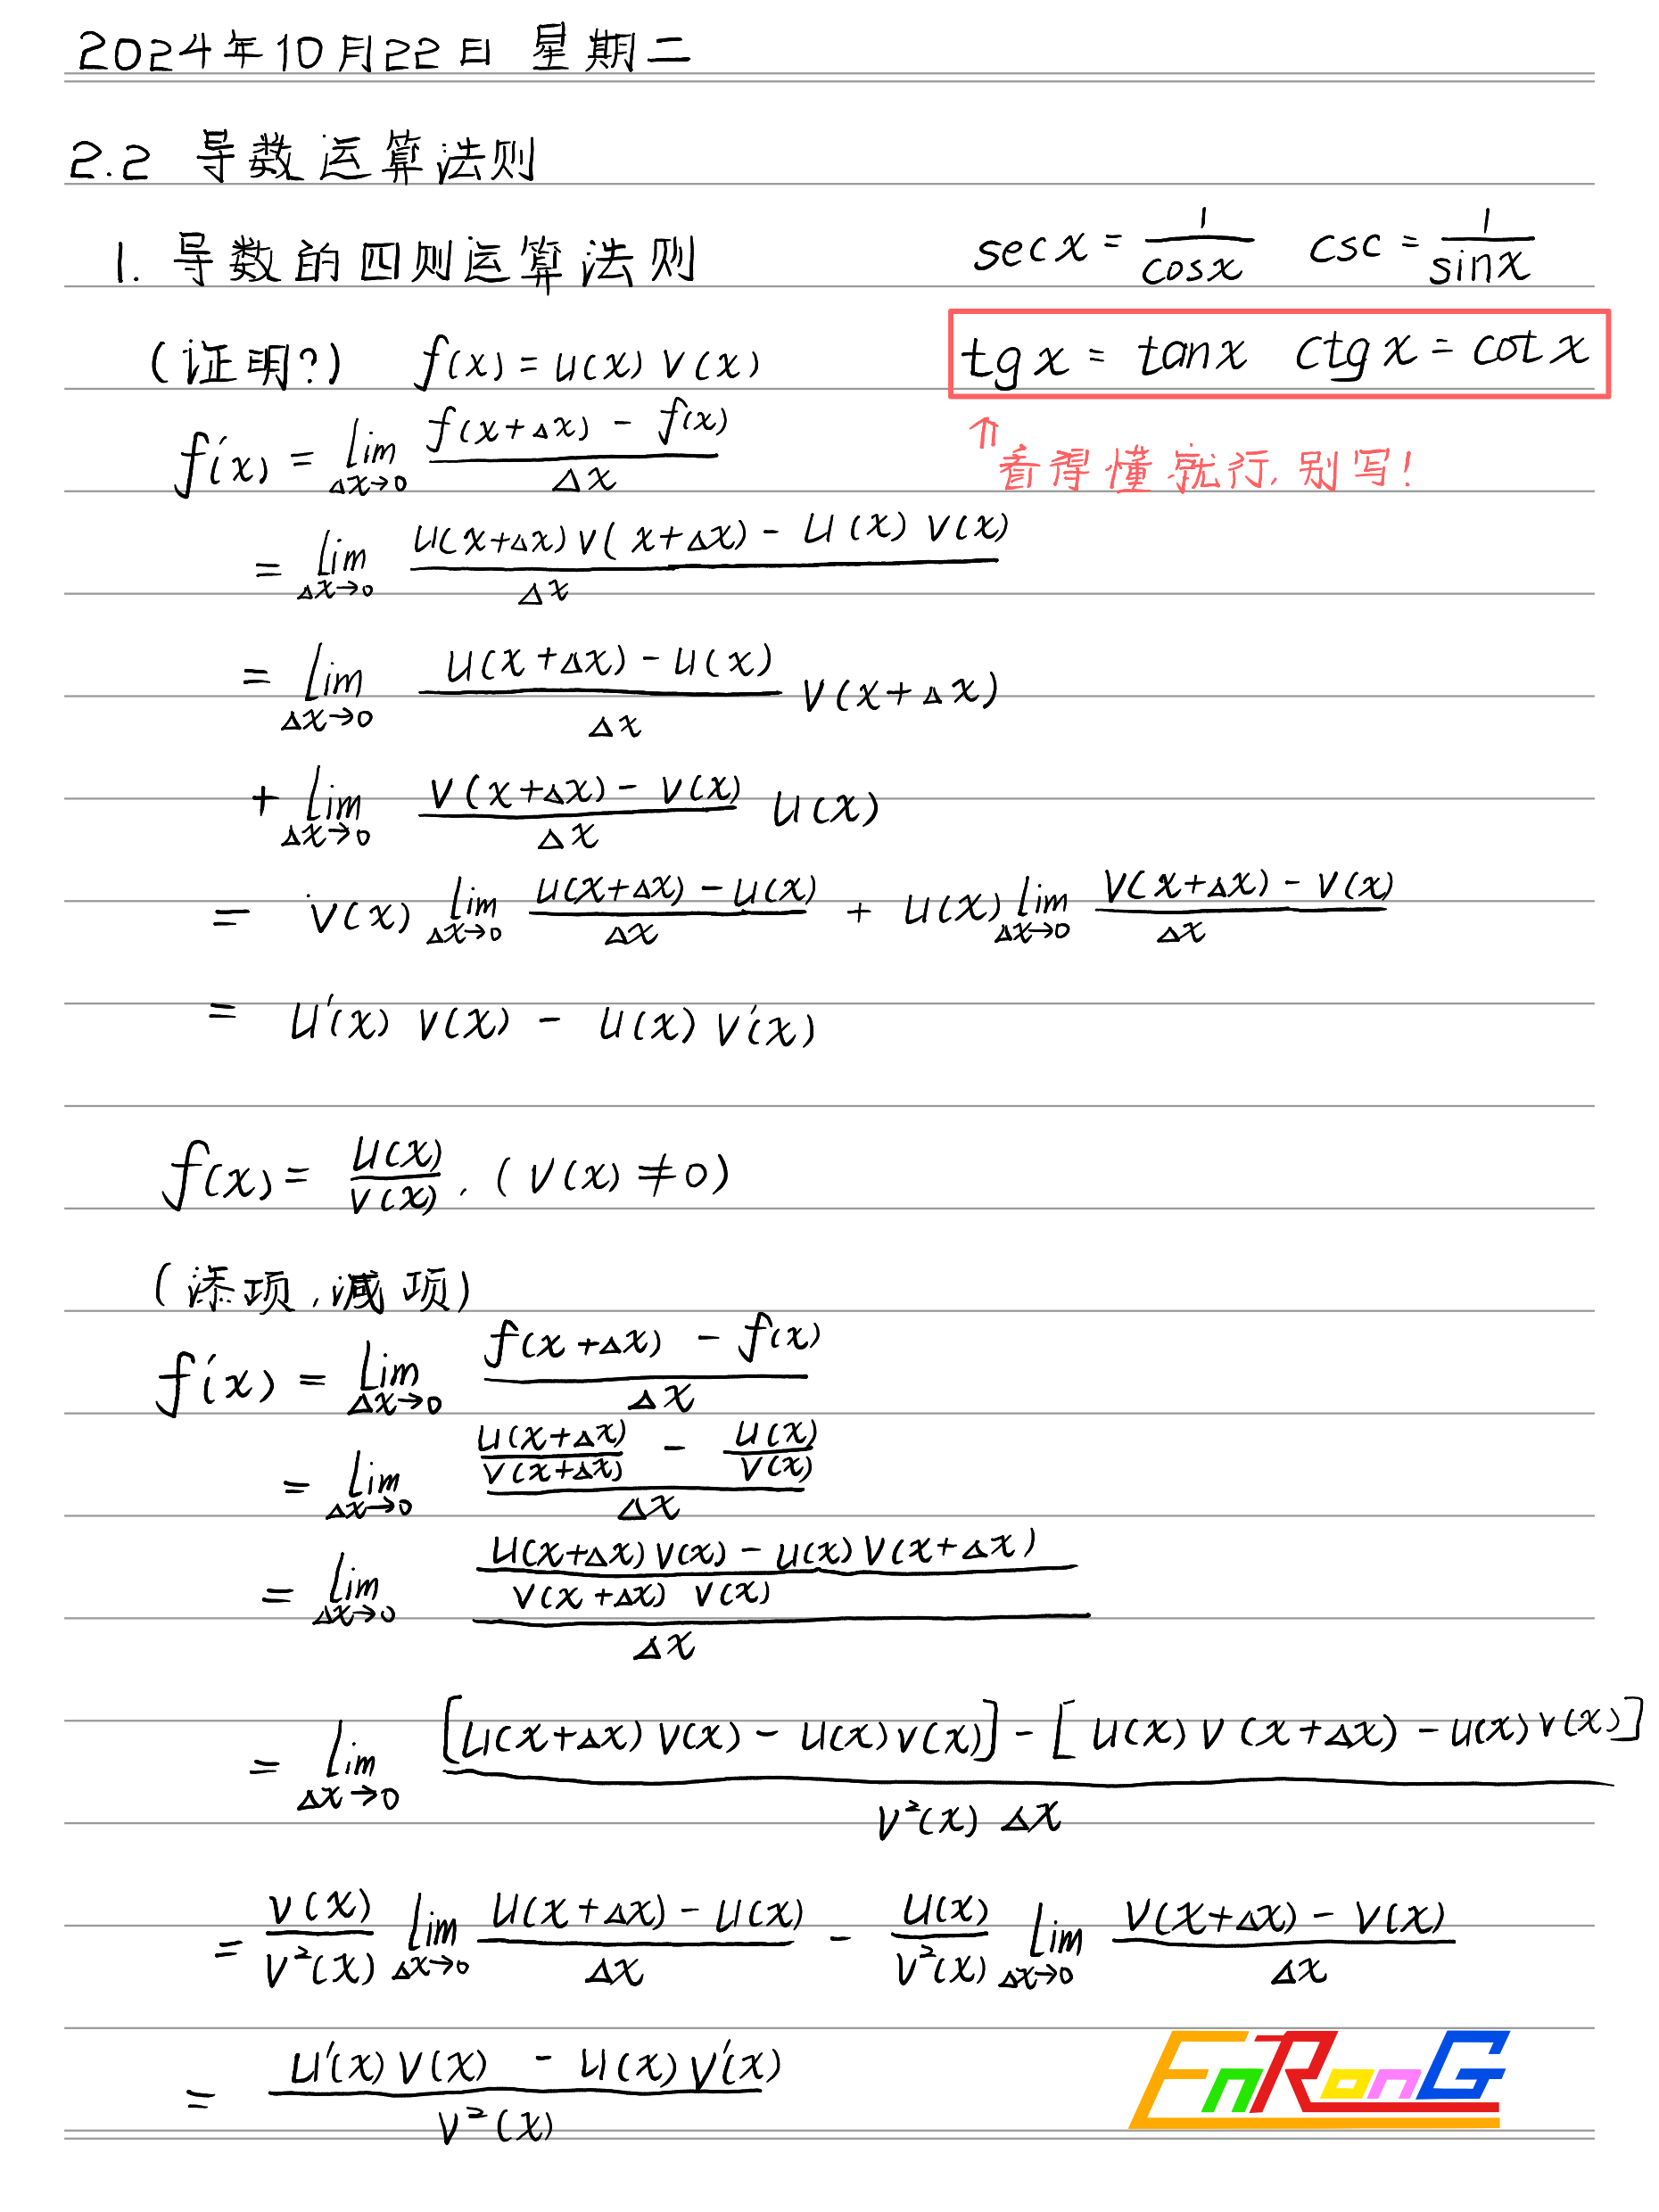 2024年10月22日 星期二
2.2 导数运算法则
1. 导数的四则运算法则
sec x = 1/cosx csc = 1/sinx
(证明?) f(x) = u(x) v(x)
tg x = tanx ctg x = cot x
↑看得懂就行, 别写!
f'(x) = lim Δx→0 (f(x+Δx) - f(x))/Δx
= lim Δx→0 (u(x+Δx) v(x+Δx) - u(x) v(x))/Δx
= lim Δx→0 (u(x+Δx) - u(x))/Δx v(x+Δx)
+ lim Δx→0 (v(x+Δx) - v(x))/Δx u(x)
= v(x) lim Δx→0 (u(x+Δx) - u(x))/Δx + u(x) lim Δx→0 (v(x+Δx) - v(x))/Δx
= u'(x) v(x) - u(x) v'(x)
f(x) = u(x)/v(x). (v(x) ≠ 0)
(添项, 减项)
f'(x) = lim Δx→0 (f(x+Δx) - f(x))/Δx
= lim Δx→0 (u(x+Δx)/v(x+Δx) - u(x)/v(x))/Δx
= lim Δx→0 ((u(x+Δx) v(x) - u(x) v(x+Δx))/(v(x+Δx) v(x)))/Δx
= lim Δx→0 ([u(x+Δx) v(x) - u(x) v(x)] - [u(x) v(x+Δx) - u(x) v(x)])/(v²(x) Δx)
= v(x)/v²(x) lim Δx→0 (u(x+Δx) - u(x))/Δx - u(x)/v²(x) lim Δx→0 (v(x+Δx) - v(x))/Δx
= (u'(x) v(x) - u(x) v'(x))/v²(x)
EnRonG